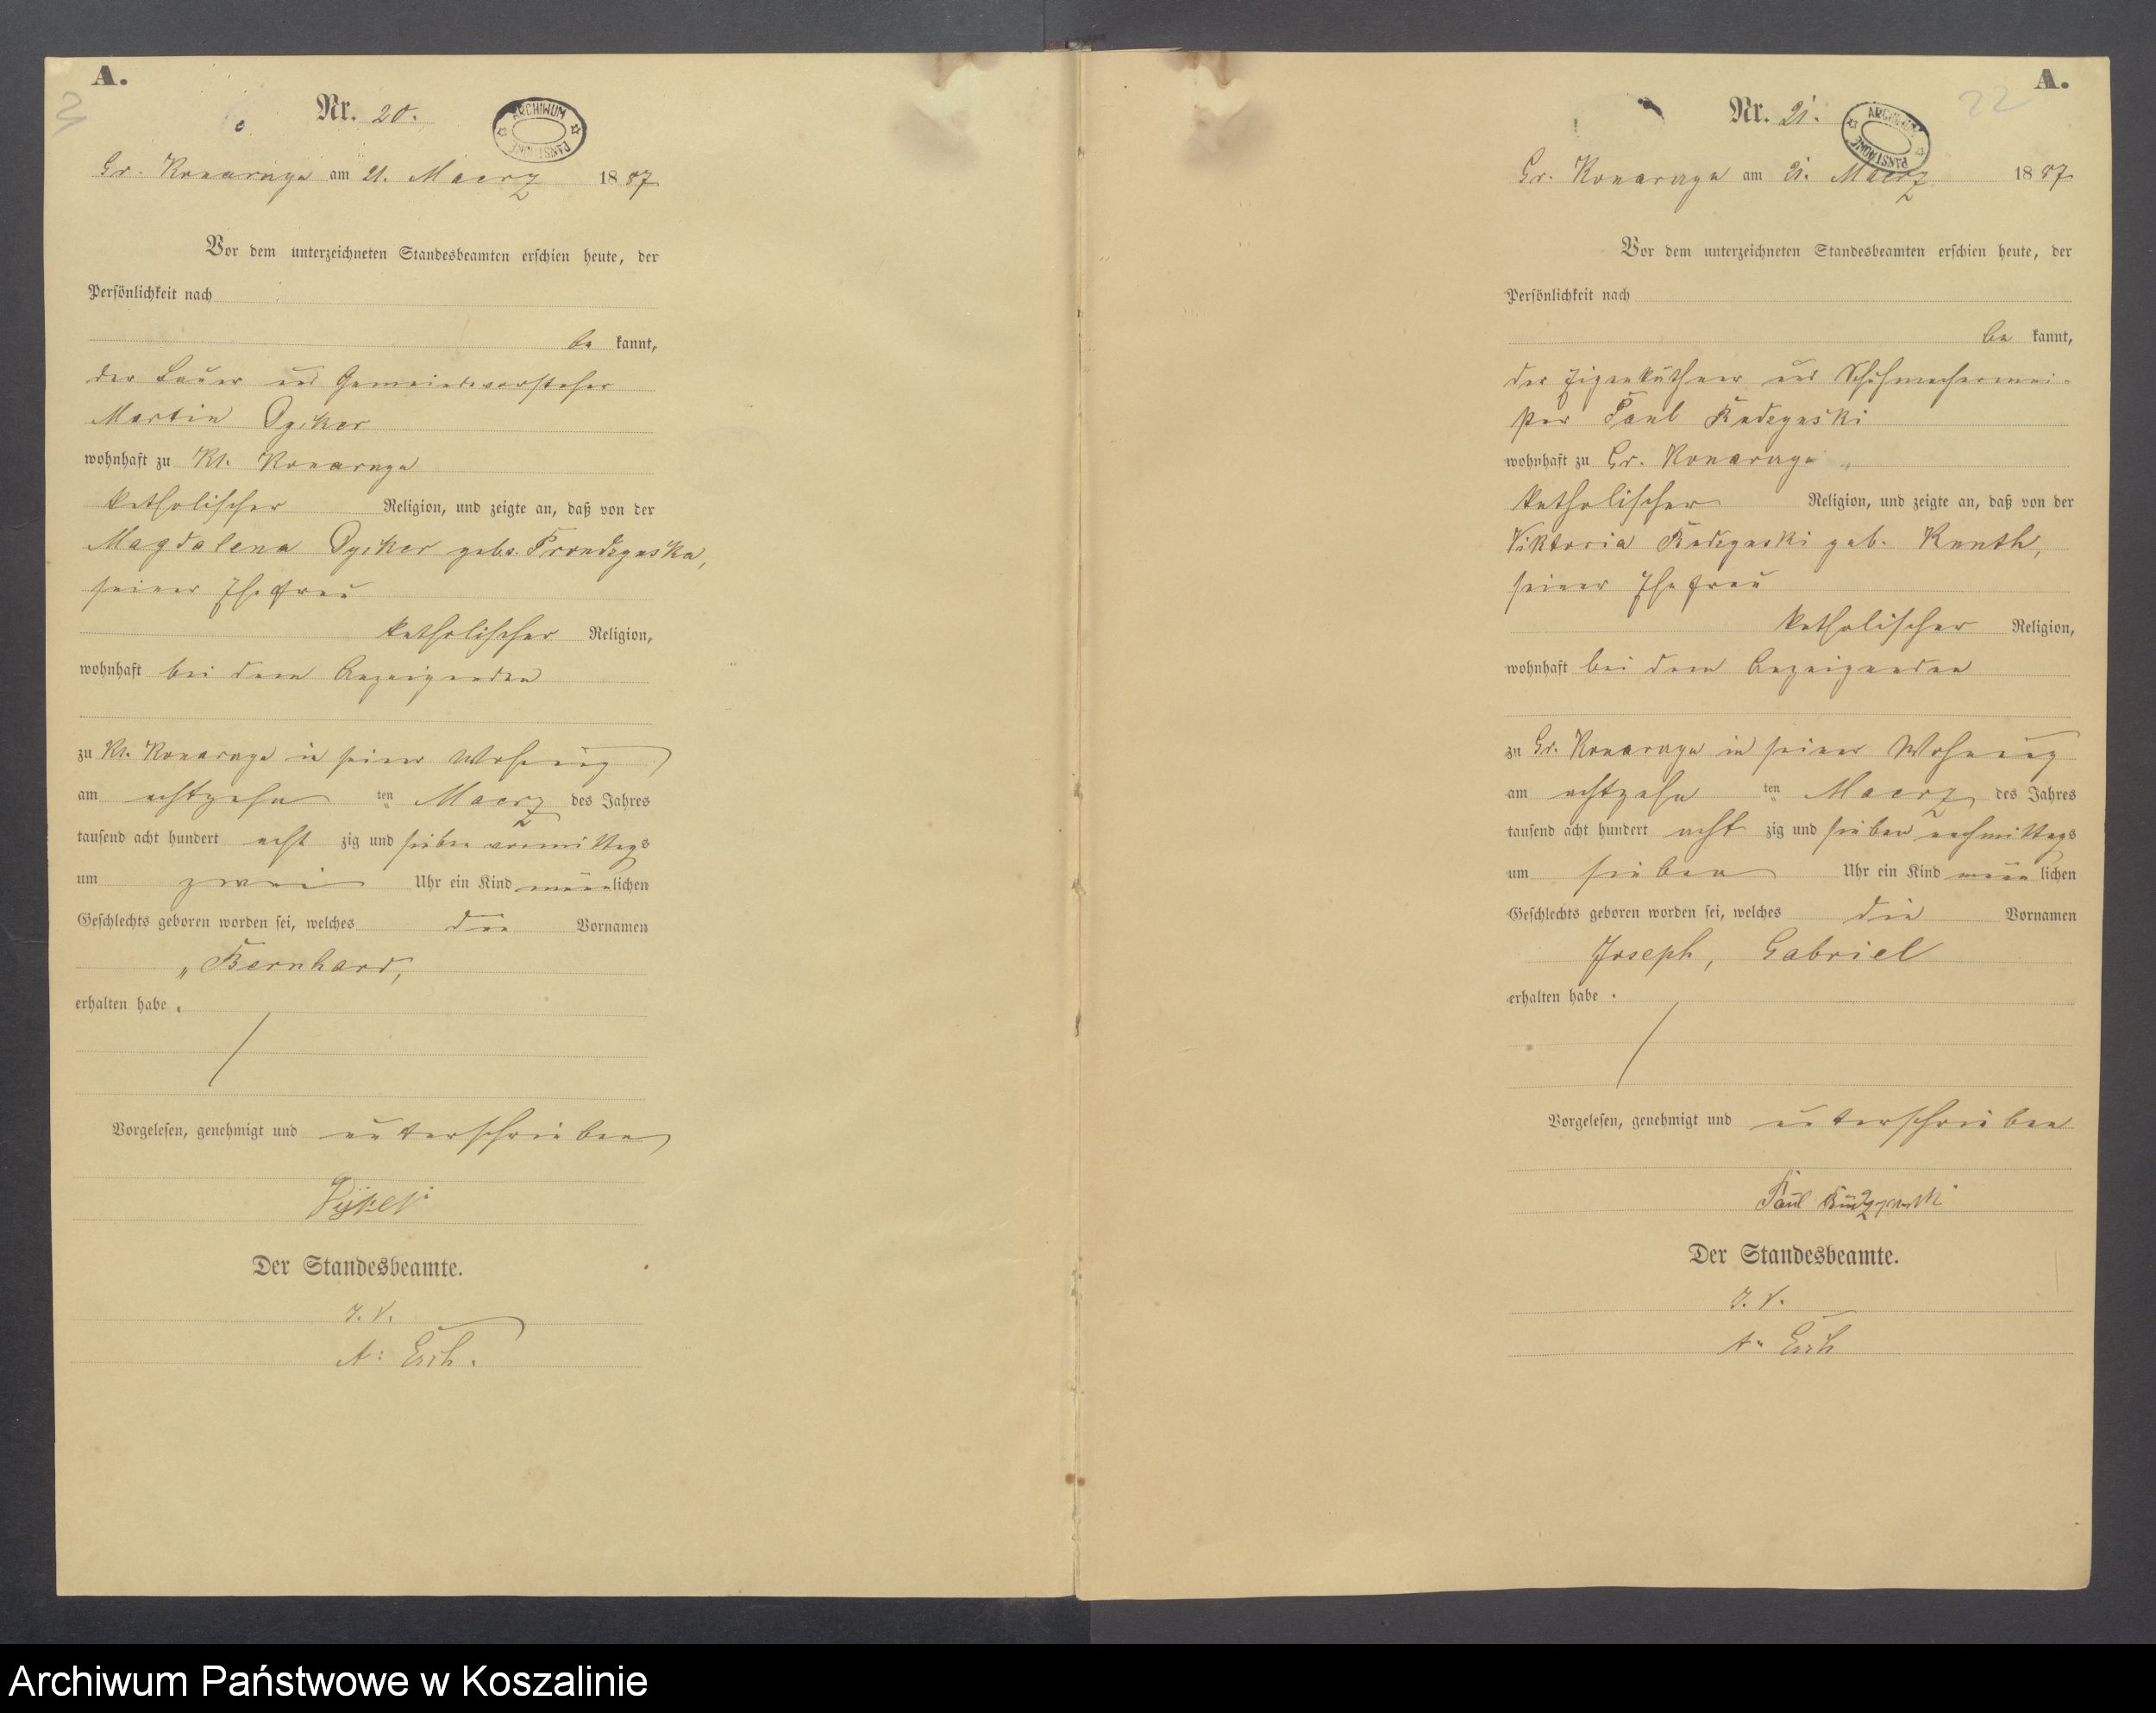 A.
Nr. 20.
ARCHIWUM PAŃSTWOWE
Gr. Konarzyn am 21. Maerz 1887
Vor dem unterzeichneten Standesbeamten erschien heute, der
Persönlichkeit nach
be kannt,
der Bauer und Gemeindevorsteher
Martin
wohnhaft zu Kl. Konarzyn
katholischer Religion, und zeigte an, daß von der
Magdalena geb.
seiner Ehefrau
katholischer Religion,
wohnhaft bei dem Anzeigenden
zu Kl. Konarzyn in seiner Wohnung
am achtzehn ten Maerz des Jahres
tausend acht hundert acht zig und sieben vormittags
um zwei Uhr ein Kind männlichen
Geschlechts geboren worden sei, welches den Vornamen
„Bernhard,
erhalten habe.
Vorgelesen, genehmigt und unterschrieben
Der Standesbeamte.
J. V.
A.
22
A.
Nr. 21.
ARCHIWUM PAŃSTWOWE
Gr. Konarzyn am 21. Maerz 1887
Vor dem unterzeichneten Standesbeamten erschien heute, der
Persönlichkeit nach
be kannt,
der Eigenkäthner und Schuhmachermei-
ster Paul
wohnhaft zu Gr. Konarzyn
katholischer Religion, und zeigte an, daß von der
Viktoria geb.
seiner Ehefrau
katholischer Religion,
wohnhaft bei dem Anzeigenden
zu Gr. Konarzyn in seiner Wohnung
am achtzehn ten Maerz des Jahres
tausend acht hundert acht zig und sieben nachmittags
um sieben Uhr ein Kind männ lichen
Geschlechts geboren worden sei, welches die Vornamen
Joseph, Gabriel
erhalten habe.
Vorgelesen, genehmigt und unterschrieben
Paul
Der Standesbeamte.
J. V.
A.
Archiwum Państwowe w Koszalinie